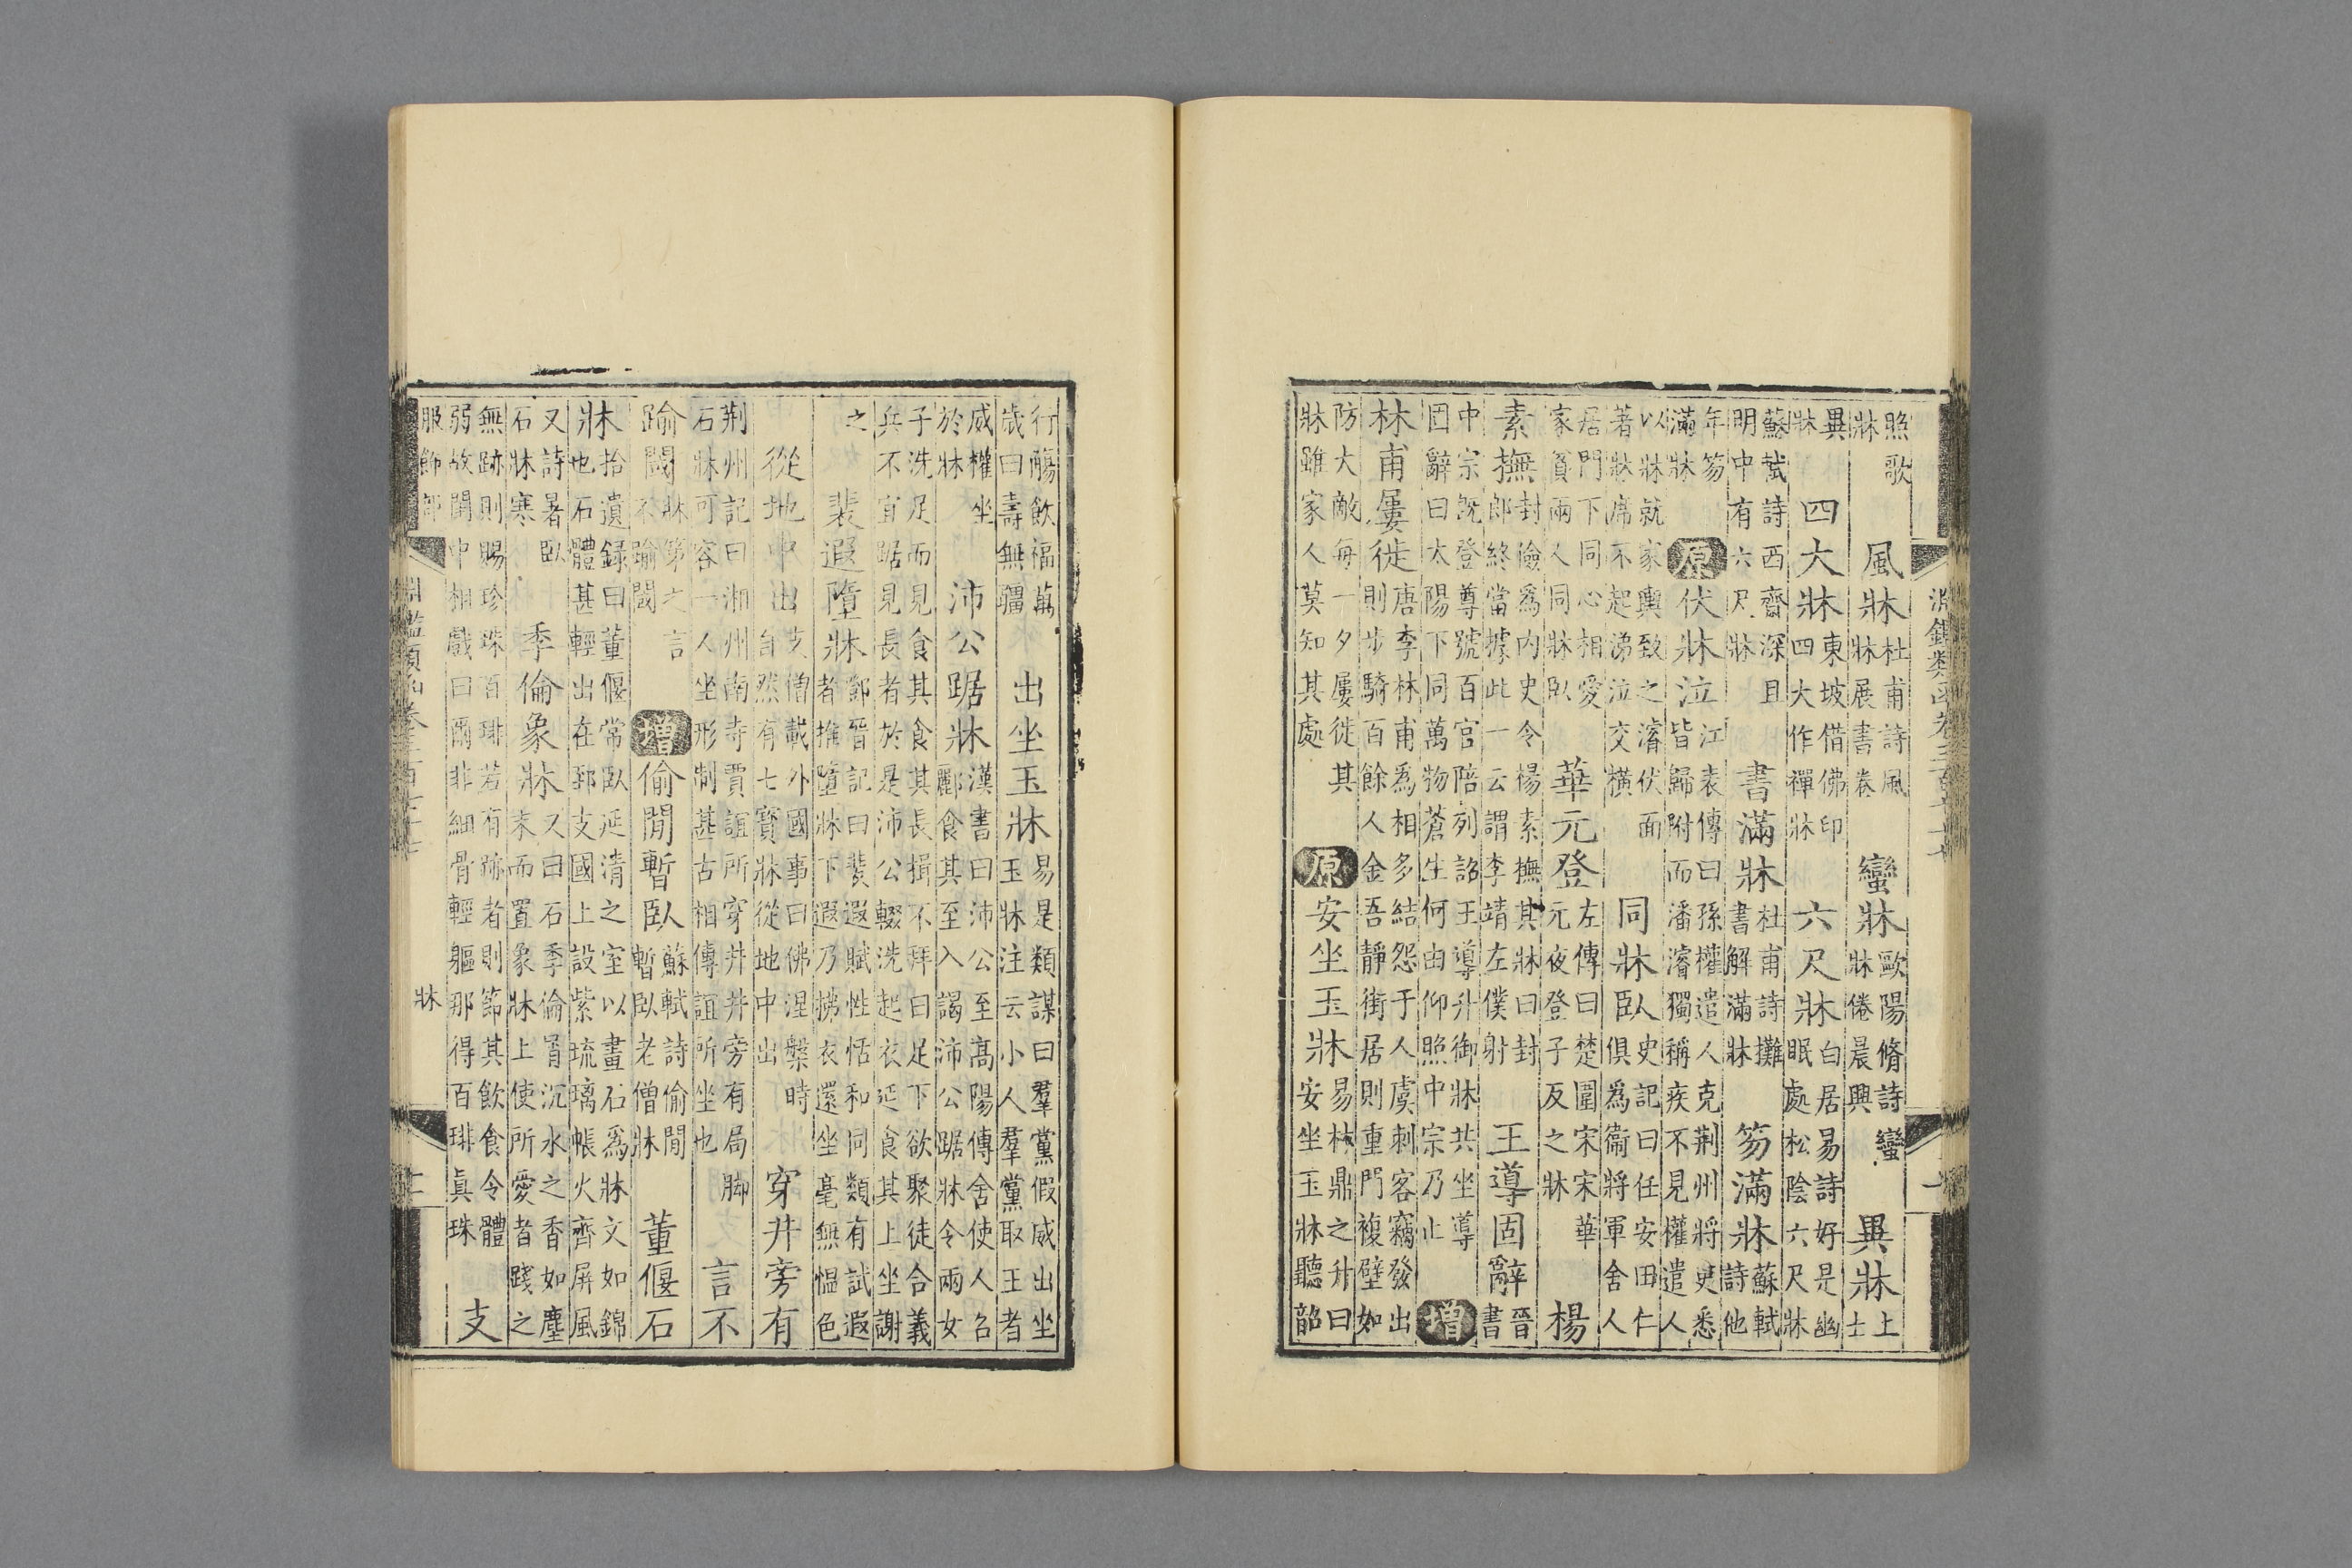 淵鑑類函卷三百七十七 一
照歌牀 風牀 杜甫詩風牀展書卷 蠻牀 歐陽脩詩蠻牀倦晨興 異牀 上士
異牀 四大牀 東坡借佛印四大作禪牀 六尺牀 白居易詩好是幽眠處松陰六尺牀
蘇軾詩西齋深且明中有六尺牀 書滿牀 杜甫詩攤書解滿牀 笏滿牀 蘇軾詩他
年笏滿牀 原 伏牀泣 江表傳曰孫權遣人克荆州將吏悉皆歸附而潘濬獨稱疾不見權遣人
以牀就家輿致之濬伏面著牀席不起涕泣交橫 同牀臥 史記曰任安田仁俱爲衞將軍舍人
居門下同心相愛家貧兩人同牀臥 華元登 左傳曰楚圍宋宋華元夜登子反之牀 楊
素撫 封儉爲內史令楊素撫其牀曰封郎終當據此一云謂李靖左僕射 王導固辭 晉書
中宗既登尊號百官陪列詔王導升御牀共坐導固辭曰太陽下同萬物蒼生何由仰照中宗乃止 增
林甫屢徙 唐李林甫爲相多結怨于人虞刺客竊發出則步騎百餘人金吾靜街居則重門複壁如
防大敵每一夕屢徙其牀雖家人莫知其處 原 安坐玉牀 易林鼎之升曰安坐玉牀聽韶
行觴飲福萬歲曰壽無疆 出坐玉牀 易是類謀曰羣黨假威出坐玉牀注云小人羣黨取王者
威權坐於牀 沛公踞牀 漢書曰沛公至高陽傳舍使人召酈食其至入謁沛公踞牀令兩女
子洗足而見食其食其長揖不拜曰足下欲聚徒合義兵不宜踞見長者於是沛公輟洗起衣延食其上坐謝
之 裴遐墮牀 鄧晉記曰裴遐賦性恬和同類有試遐者推墮牀下遐乃拂衣還坐毫無慍色
從地中出 支僧載外國事曰佛涅槃時自然有七寶牀從地中出 穿井旁有
荆州記曰湘州南寺賈誼所穿井井旁有局脚石牀可容一人坐形制甚古相傳誼所坐也 言不
踰閾 牀第之言不踰閾 增 偷閒暫臥 蘇軾詩偷閒暫臥老僧牀 董偃石
牀 拾遺録曰董偃常臥延清之室以畫石爲牀文如錦也石體甚輕出在郅支國上設紫琉璃帳火齊屏風
又詩暑臥石牀寒 季倫象牀 又曰石季倫屑沉水之香如塵末而置象牀上使所愛者踐之
無跡則賜珍珠百琲若有跡者則節其飲食令體弱故閨中相戲曰爾非細骨輕軀那得百琲眞珠 支
服飾部 淵鑑類函卷三百七十七 牀 二